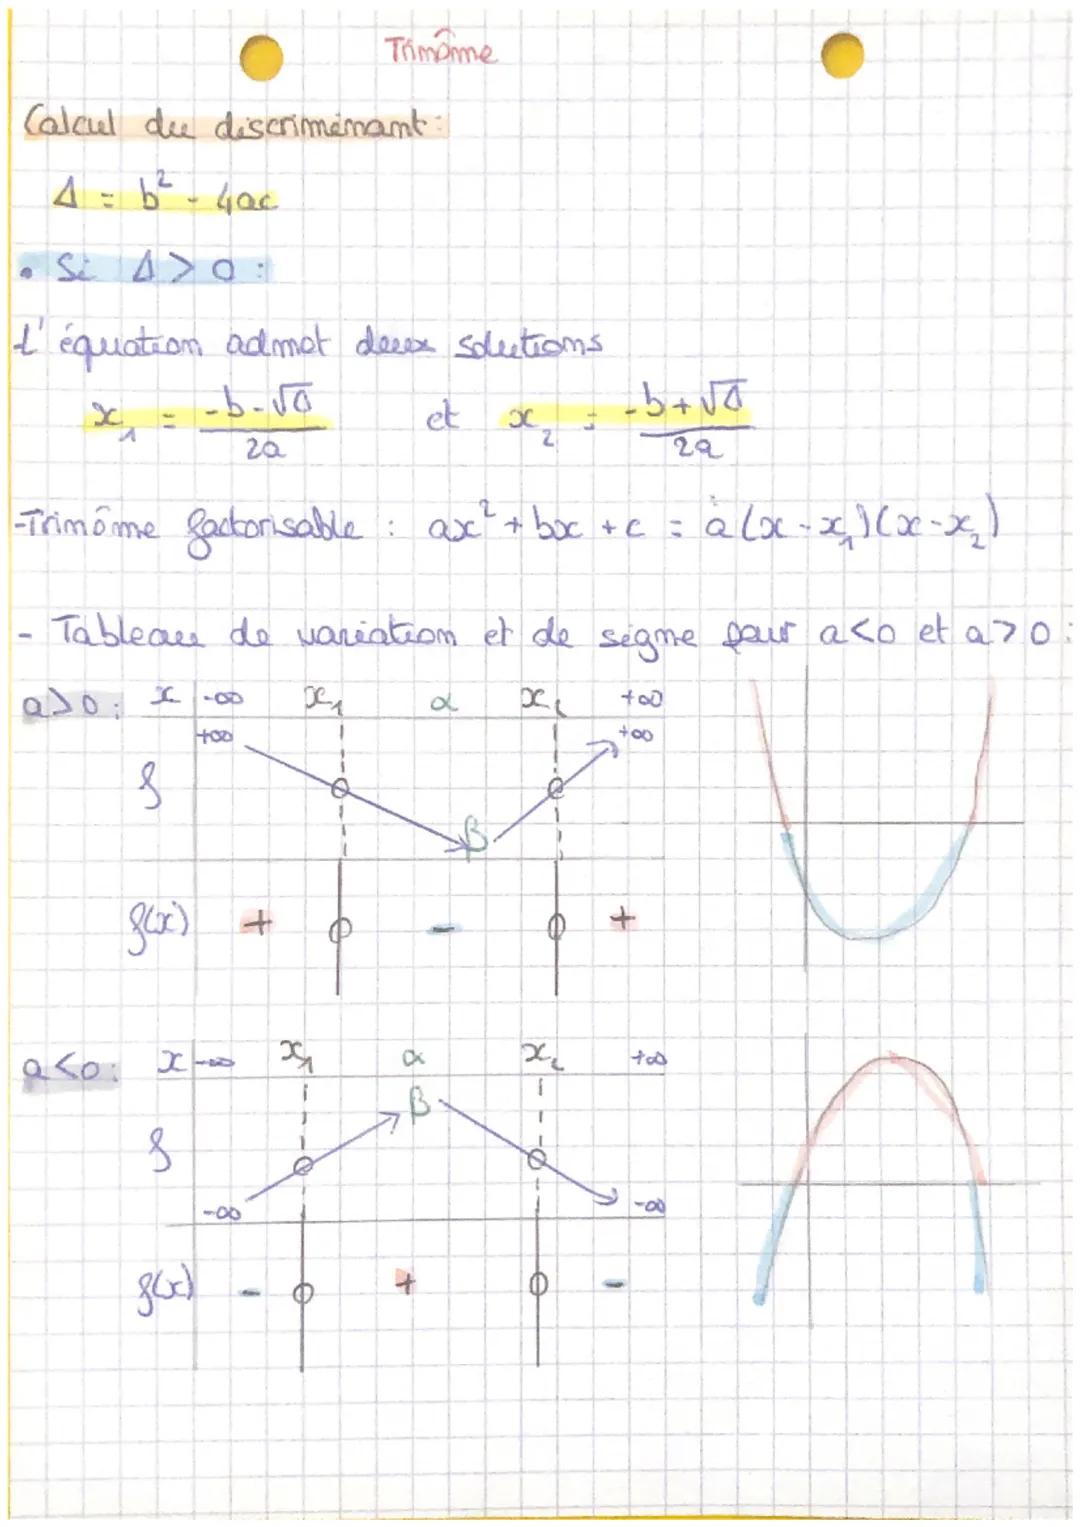 Trinôme
Calcul du discriminant :
Δ = b² - 4ac
• Si Δ > 0 :
L'équation admet deux solutions
x₁ = (-b-√Δ)/2a et x₂ = (-b+√Δ)/2a
-Trinôme factorisable : ax² + bx + c = a(x-x₁)(x-x₂)
- Tableau de variation et de signe pour a<0 et a>0 :
a>0 : x -∞ x₁ α x₂ +∞
+∞ +∞
f
β
f(x) + 0 - 0 +
a<0 : x -∞ x₁ α x₂ +∞
β
f
-∞ -∞
f(x) - 0 + 0 -